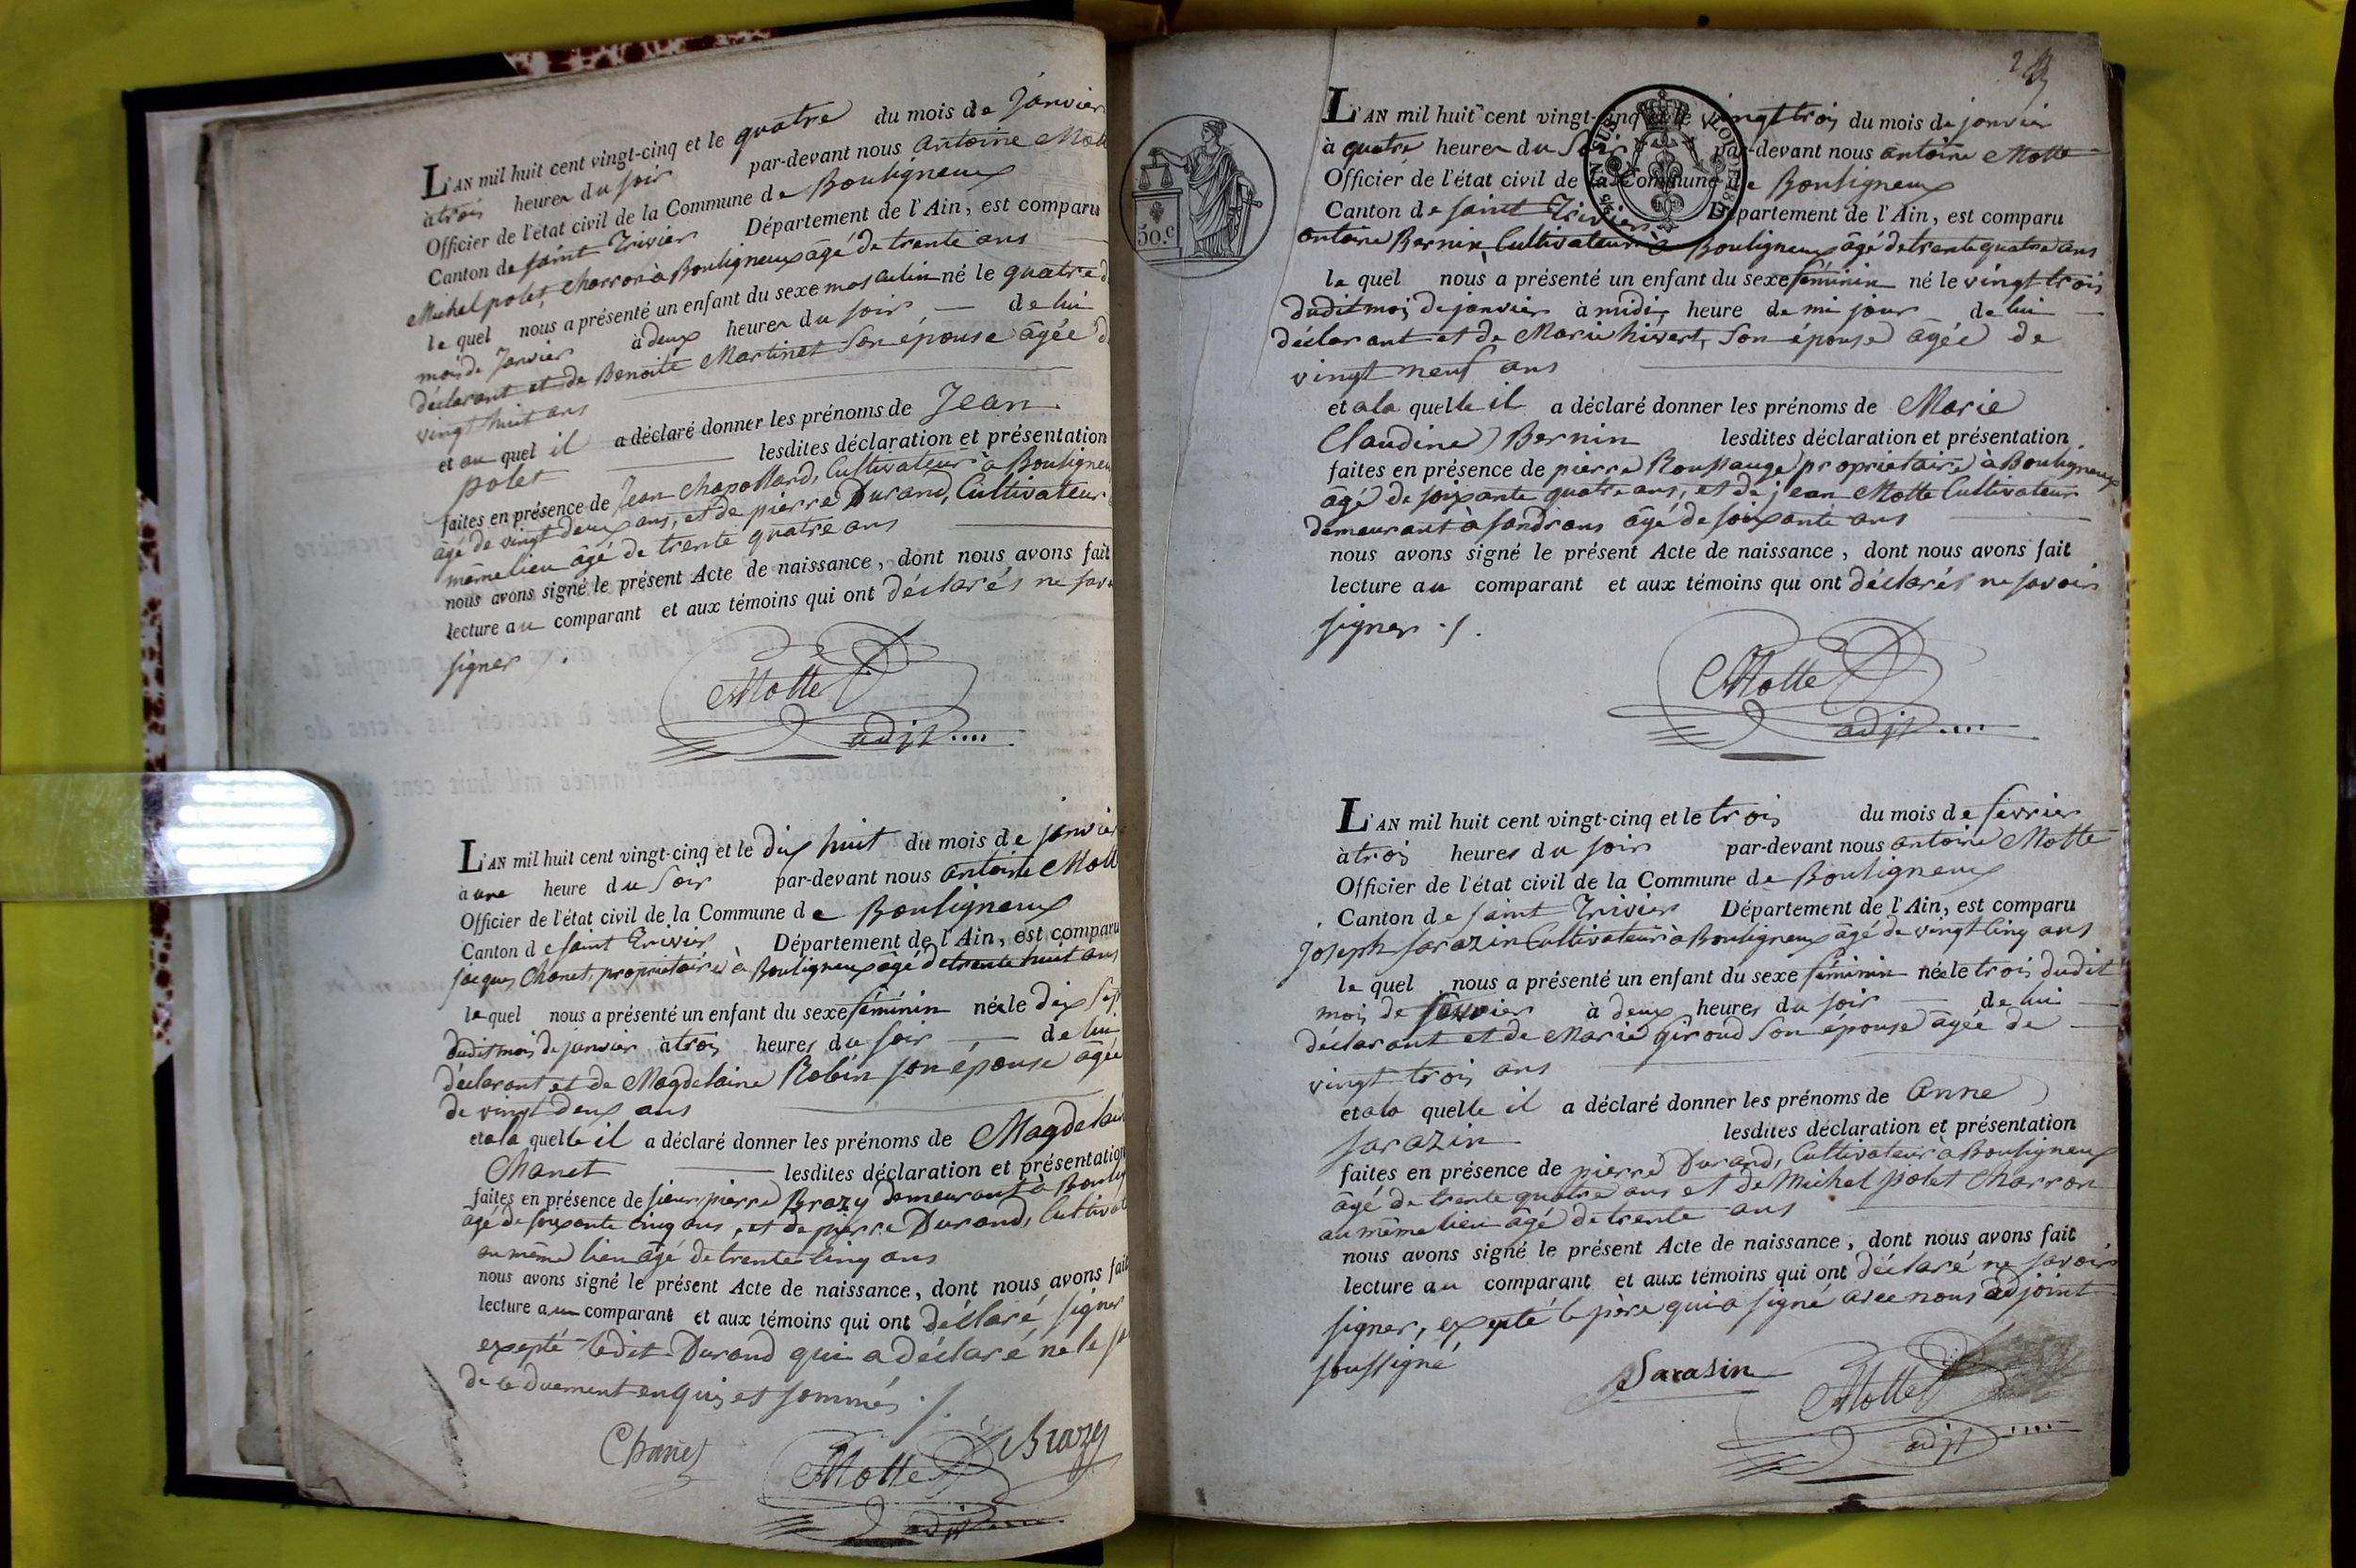 L'AN mil huit cent vingt-cinq et le quatre du mois de Janvier
à trois heures du soir par-devant nous antoine Mott
Officier de l'état civil de la Commune de Bouligneux
Canton de saint Trivier Département de l'Ain, est comparu
Michel polet, charron à Bouligneux âgé de trente ans
le quel nous a présenté un enfant du sexe masculin né le quatre d
mois de Janvier à deux heures du soir, de lui
déclarant et de Benoite Martinet son épouse âgée d
vingt huit ans
et au quel il a déclaré donner les prénoms de Jean
polet lesdites déclaration et présentation
faites en présence de Jean Chapollard, Cultivateur à Bouligneu
âgé de vingt deux ans, et de pierre Durand, Cultivateur
même lieu âgé de trente quatre ans
nous avons signé le présent Acte de naissance, dont nous avons fait
lecture au comparant et aux témoins qui ont déclarés ne savo
signer ./.
Motte
adjt....
L'AN mil huit cent vingt-cinq et le dix huit du mois de janvier
à une heure du soir par-devant nous antoine Mott
Officier de l'état civil de la Commune de Bouligneux
Canton de saint Trivier Département de l'Ain, est comparu
jacques Chanet, propriétaire à Bouligneux âgé de trente huit ans
le quel nous a présenté un enfant du sexe féminin née le dix sep
dudit mois de janvier à trois heures du soir de lui
déclarant et de Magdelaine Robin son épouse âgée
de vingt deux ans
et a la quelle il a déclaré donner les prénoms de Magdelain
Chanet lesdites déclaration et présentation
faites en présence de sieur pierre Brazy demeurant à Boulig
âgé de soixante cinq ans, et de pierre Durand, Cultivat
au même lieu âgé de trente cinq ans
nous avons signé le présent Acte de naissance, dont nous avons fait
lecture au comparant et aux témoins qui ont déclaré signer
exepté ledit Durand qui a déclaré ne le
de ce duement enquis et sommés ./.
Chanet
Brazy
Motte
adjt....
2
L'AN mil huit cent vingt-cinq et le vingt trois du mois de janvier
à quatre heures du Soir par-devant nous antoine Motte
Officier de l'état civil de la Commune de Bouligneux
Canton de saint Trivier Département de l'Ain, est comparu
antoine Bernin Cultivateur à Bouligneux âgé de trente quatre ans
le quel nous a présenté un enfant du sexe féminin né le vingt trois
dudit mois de janvier à midi, heure de mi jour de lui
déclarant et de Marie hivert, son épouse âgée de
vingt neuf ans
et a la quelle il a déclaré donner les prénoms de Marie
Claudine Bernin lesdites déclaration et présentation
faites en présence de pierre Roussange propriétaire à Bouligneux
âgé de soixante quatre ans, et de jean Motte Cultivateur
demeurant à sandrans âgé de soixante ans
nous avons signé le présent Acte de naissance, dont nous avons fait
lecture au comparant et aux témoins qui ont déclarés ne savoir
signer ./.
Motte
adjt....
50.c
L'AN mil huit cent vingt-cinq et le trois du mois de février
à trois heures du soir par-devant nous antoine Motte
Officier de l'état civil de la Commune de Bouligneux
Canton de saint Trivier Département de l'Ain, est comparu
Joseph sarazin Cultivateur à Bouligneux âgé de vingt cinq ans
le quel nous a présenté un enfant du sexe féminin née le trois dudit
mois de février à deux heures du soir de lui
déclarant et de Marie giroud son épouse âgée de
vingt trois ans
et a la quelle il a déclaré donner les prénoms de Anne
sarazin lesdites déclaration et présentation
faites en présence de pierre Durand, Cultivateur à Bouligneux
âgé de trente quatre ans et de Michel polet charron
au même lieu âgé de trente ans
nous avons signé le présent Acte de naissance, dont nous avons fait
lecture au comparant et aux témoins qui ont déclaré ne savoir
signer, exepté le père qui a signé avec nous adjoint
soussigné
Sarasin
Motte
adjt....